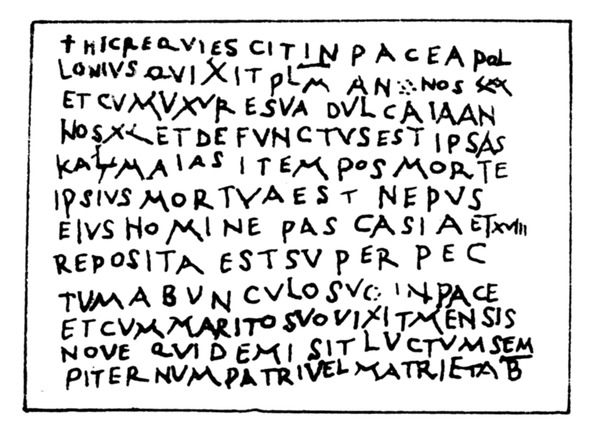 † HIC REQVIESCIT IN PACE APOL
LONIVS QVIXIT PLM ANNOS
ET CVM VXVRE SVA DVLCAIA AN
NOS XL ET DEFVNCTVS EST IPSAS
KAL MAIAS ITEM POS MORTE
IPSIVS MORTVA EST NEPVS
EIVS HOMINE PASCASIA ET XVIII
REPOSITA EST SVPER PEC
TVM ABVNCVLO SVO IN PACE
ET CVM MARITO SVO VIXIT MENSIS
NOVE QVI DEMISIT LVCTVM SEM
PITERNVM PATRI VEL MATRI ET AB